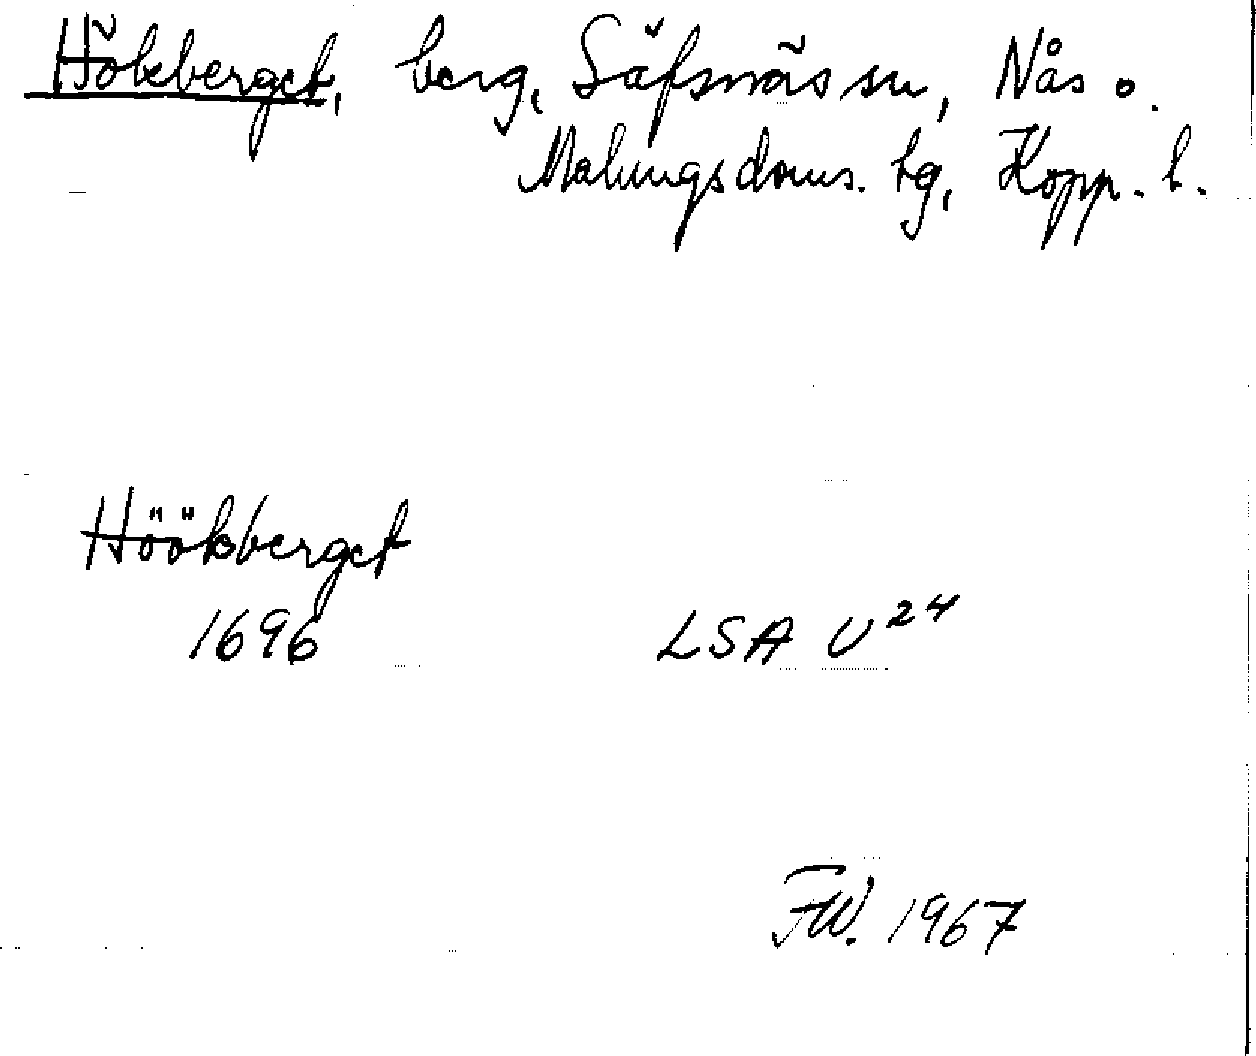 Hökberget, berg, Säfsnäs sn, Nås o.
Malungs doms. tg, Kopp. l.
Höökberget
1696 LSA U24
FW. 1967